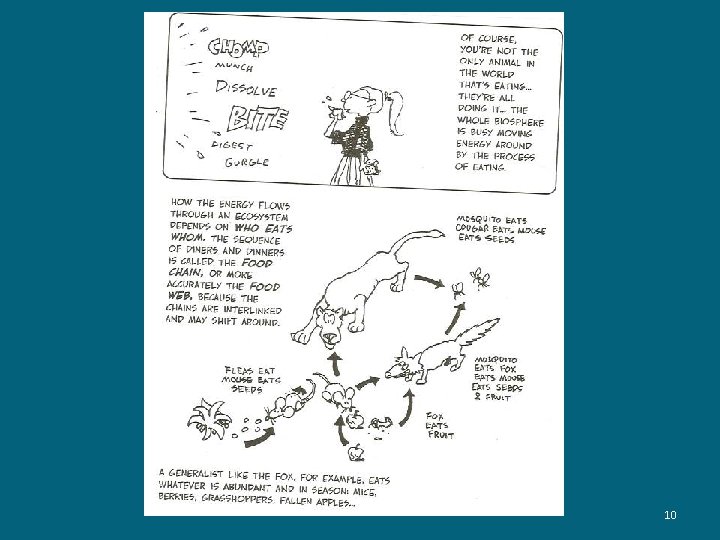 CHOMP
MUNCH
DISSOLVE
BITE
DIGEST
GURGLE
OF COURSE,
YOU'RE NOT THE
ONLY ANIMAL IN
THE WORLD
THAT'S EATING...
THEY'RE ALL
DOING IT... THE
WHOLE BIOSPHERE
IS BUSY MOVING
ENERGY AROUND
BY THE PROCESS
OF EATING.
HOW THE ENERGY FLOWS
THROUGH AN ECOSYSTEM
DEPENDS ON WHO EATS
WHOM. THE SEQUENCE
OF DINERS AND DINNERS
IS CALLED THE FOOD
CHAIN, OR MORE
ACCURATELY THE FOOD
WEB, BECAUSE THE
CHAINS ARE INTERLINKED
AND MAY SHIFT AROUND.
MOSQUITO EATS
COUGAR EATS MOUSE
EATS SEEDS
FLEAS EAT
MOUSE EATS
SEEDS
MOSQUITO
EATS FOX
EATS MOUSE
EATS SEEDS
& FRUIT
FOX
EATS
FRUIT
A GENERALIST LIKE THE FOX, FOR EXAMPLE, EATS
WHATEVER IS ABUNDANT AND IN SEASON: MICE,
BERRIES, GRASSHOPPERS, FALLEN APPLES...
10